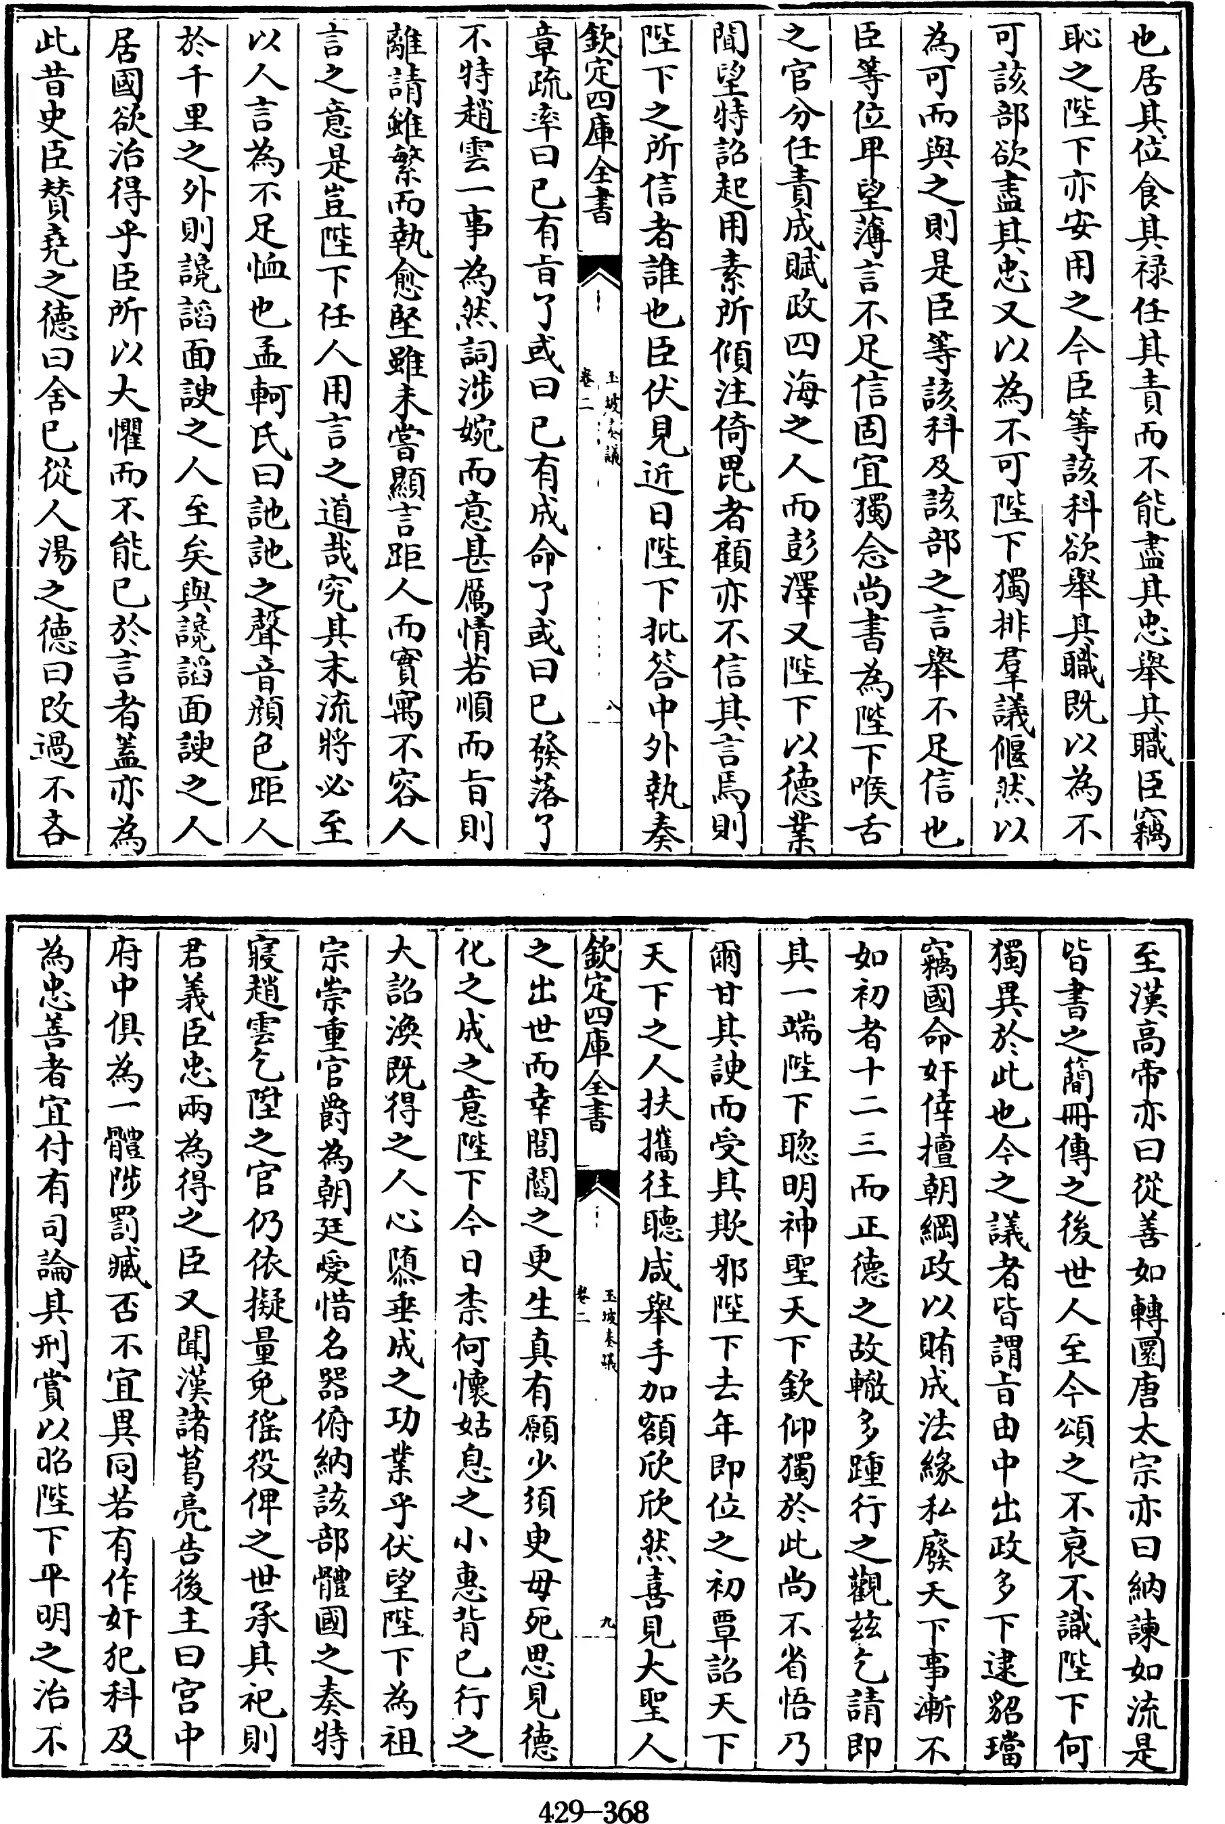 也居其位食其禄任其責而不能盡其忠舉其職臣竊
恥之陛下亦安用之今臣等該科欲舉其職既以為不
可該部欲盡其忠又以為不可陛下獨排羣議偃然以
為可而與之則是臣等該科及該部之言舉不足信也
臣等位卑望薄言不足信固宜獨念尚書為陛下喉舌
之官分任責成賦政四海之人而彭澤又陛下以德業
聞望特詔起用素所傾注倚毘者顧亦不信其言焉則
陛下之所信者誰也臣伏見近日陛下批答中外執奏
欽定四庫全書
玉坡奏議
卷二
八
章疏率曰已有旨了或曰已有成命了或曰已發落了
不特趙雲一事為然詞涉婉而意甚厲情若順而旨則
離請雖繁而執愈堅雖未嘗顯言距人而實寓不容人
言之意是豈陛下任人用言之道哉究其末流將必至
以人言為不足恤也孟軻氏曰訑訑之聲音顔色距人
於千里之外則讒謟面諛之人至矣與讒謟面諛之人
居國欲治得乎臣所以大懼而不能已於言者蓋亦為
此昔史臣賛堯之德曰舍已從人湯之德曰改過不吝
至漢高帝亦曰從善如轉圜唐太宗亦曰納諫如流是
皆書之簡冊傳之後世人至今頌之不衰不識陛下何
獨異於此也今之議者皆謂旨由中出政多下逮貂璫
竊國命奸倖擅朝綱政以賄成法緣私廢天下事漸不
如初者十二三而正德之故轍多踵行之觀兹乞請即
其一端陛下聰明神聖天下欽仰獨於此尚不省悟乃
爾甘其諛而受其欺邪陛下去年即位之初覃詔天下
天下之人扶攜往聽咸舉手加額欣欣然喜見大聖人
欽定四庫全書
玉坡奏議
卷二
九
之出世而幸閭閻之更生真有願少須臾毋死思見德
化之成之意陛下今日柰何懷姑息之小惠背已行之
大詔渙既得之人心隳垂成之功業乎伏望陛下為祖
宗崇重官爵為朝廷愛惜名器俯納該部體國之奏特
寢趙雲乞陞之官仍依擬量免徭役俾之世承其祀則
君義臣忠兩為得之臣又聞漢諸葛亮告後主曰宮中
府中俱為一體陟罰臧否不宜異同若有作奸犯科及
為忠善者宜付有司論其刑賞以昭陛下平明之治不
429-368